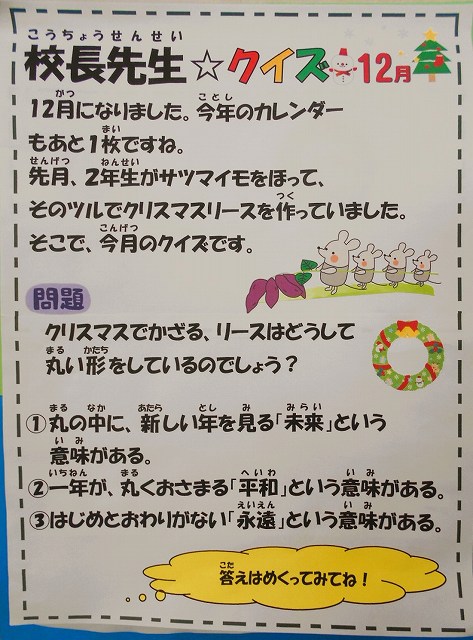 こうちょうせんせい
校長先生☆クイズ 12月
がつ ことし
12月になりました。今年のカレンダー
まい
もあと1枚ですね。
せんげつ ねんせい
先月、2年生がサツマイモをほって、
つく
そのツルでクリスマスリースを作っていました。
こんげつ
そこで、今月のクイズです。
問題
クリスマスでかざる、リースはどうして
まる かたち
丸い形をしているのでしょう？
まる なか あたら とし み みらい
①丸の中に、新しい年を見る「未来」という
いみ
意味がある。
いちねん まる へいわ いみ
②一年が、丸くおさまる「平和」という意味がある。
えいえん いみ
③はじめとおわりがない「永遠」という意味がある。
こた
答えはめくってみてね！